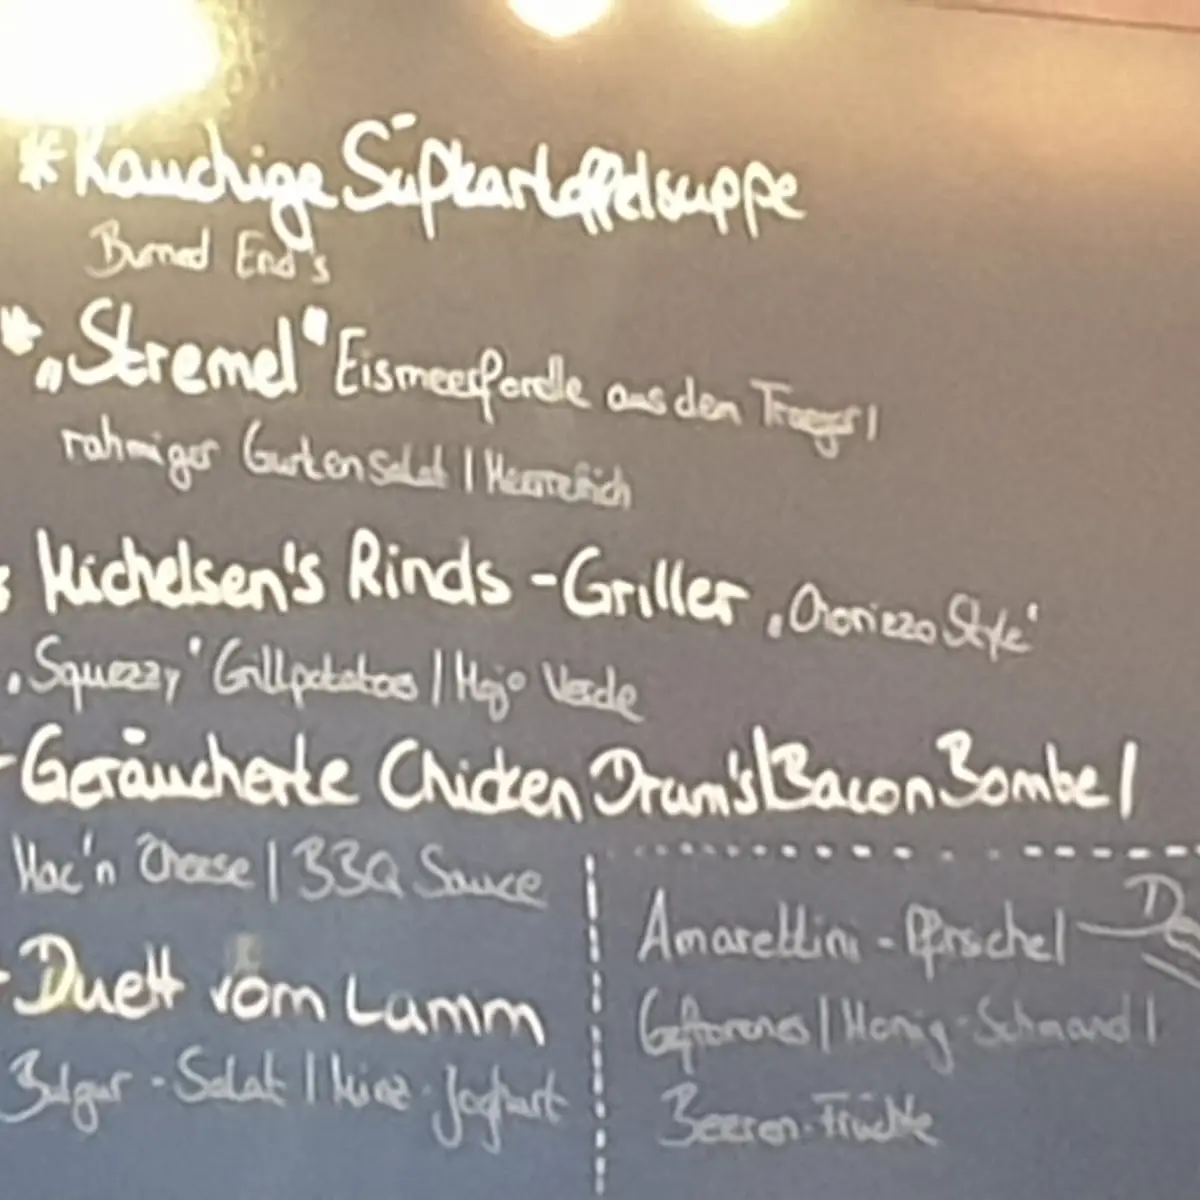 *Rauchige Süßkartoffelsuppe
Burned End's
*„Stremel" Eismeerforelle aus den Traeger |
rahmiger Gurkensalat | Meerrettich
Michelsen's Rinds - Griller „Chorizzo Style"
„Squezzy" Grillpotatoes | Mojo Verde
Geräucherte Chicken Drum's | Bacon Bombe |
Mac'n Cheese | BBQ Sauce
Duett vom Lamm
Bulgur - Salat | Minz - Joghurt
Amarettini - Pfirsche |
Gefrorenes | Honig - Schmand |
Beeren - Früchte